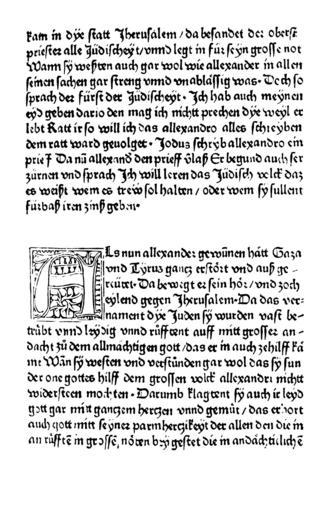 kam in dye statt Jherusalem / da besandet der oberst
priester alle Jüdischeyt / vnnd legt in für seyn grosse not
Wann sy westen auch gar wol wie alexander in allen
seinen sachen gar streng vnnd vnablässig was · Doch so
sprach der fürst der Judischeyt · Ich hab auch meynen
eyd geben dario den mag ich nichtt prechen dye weyl er
lebt Ratt ir so will ich das allexandro alles schreyben
dem ratt ward geuolget · Jodus schryb allexandro ein
prieff Da nū allexand den prieff Er begund auch ser
zürnen vnd sprach Ich will leren das Jüdisch volck daz
es waißt wem es trew sol haltten / oder wem sy sullent
fürbaß iren zinß geben ·
Als nun allexander gewūnen hätt Gaza
vnd Tyrus gancz erstört vnd auß ge-
reüttet · Da bewegt er sein hör / vnd zoch
eylend gegen Jherusalem · Da das ver-
nament dye Juden sy wurden vast be-
trübt vnnd leydig vnnd rüfftent auff mitt grosser an-
dacht zů dem allmächtigen gott / das er in auch zehilff kä
me Wān sy westen vnd verstünden gar wol das sy sun
der one gottes hilff dem grossen volck allexandri nichtt
widersteen mochten · Darumb klagtent sy auch ir leyd
gott gar mitt ganczem hertzen vnnd gemüt / das erhort
auch gott mitt seyner parmherczikeyt der allen den die in
an rüfftē in grossē nöten beygestet die in andächtiklichē